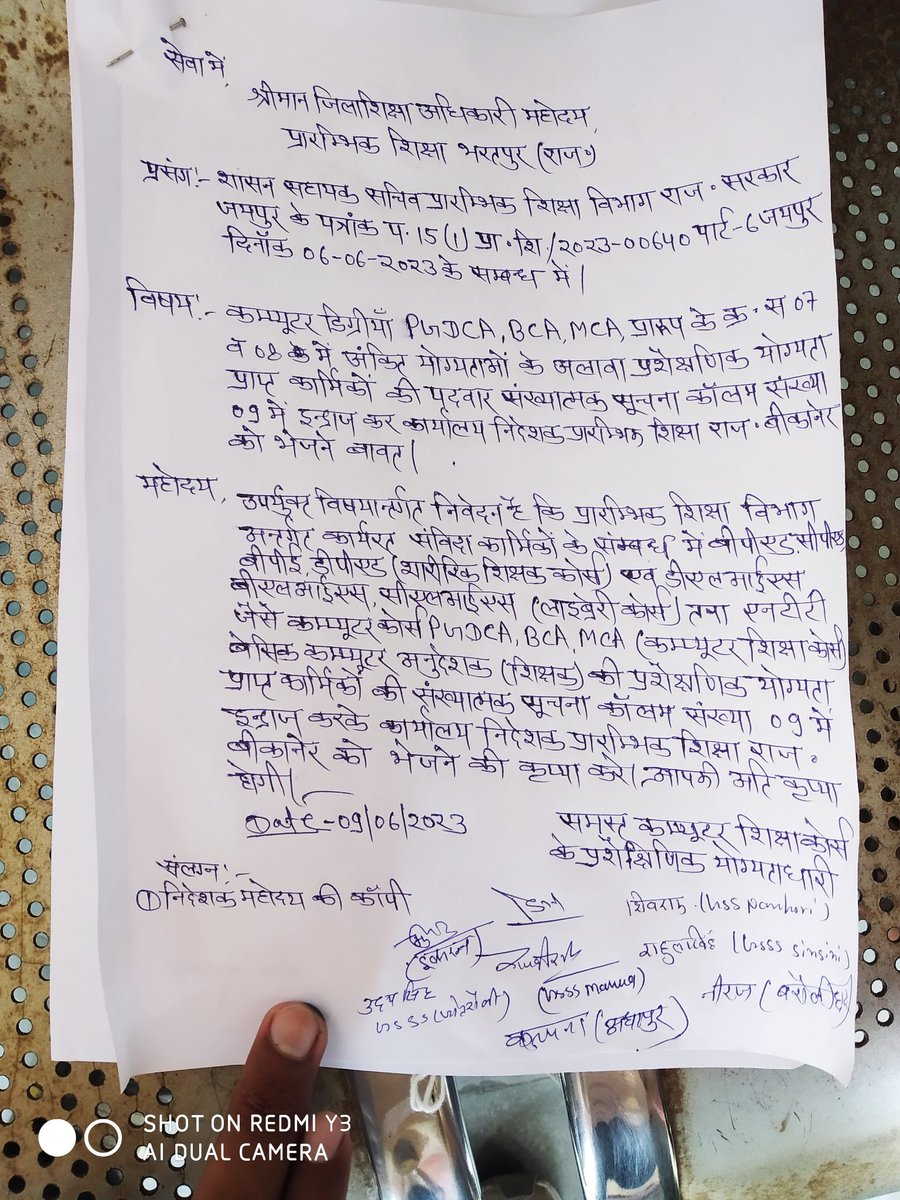 सेवा में,
श्रीमान जिला शिक्षा अधिकारी महोदय,
प्रारम्भिक शिक्षा भरतपुर (राज॰)
प्रसंग:- शासन सहायक सचिव प्रारम्भिक शिक्षा विभाग राज॰ सरकार
जयपुर के पत्रांक प. 15(1) प्रा॰शि॰/2023-00640 पार्ट-6 जयपुर
दिनाँक 06-06-2023 के सम्बन्ध में।
विषय:- कम्प्यूटर डिग्रीयाँ PGDCA, BCA, MCA, प्रारूप के क्र॰ स 07
व 08 में अंकित योग्यताओं के अलावा प्रशैक्षणिक योग्यता
प्राप्त कार्मिकों की पदवार संख्यात्मक सूचना कॉलम संख्या
09 में इन्द्राज कर कार्यालय निदेशक प्रारम्भिक शिक्षा राज॰ बीकानेर
को भेजने बावत्।
महोदय,
उपर्युक्त विषयान्तर्गत निवेदन है कि प्रारम्भिक शिक्षा विभाग
अन्तर्गत कार्यरत संविदा कार्मिकों के सम्बन्ध में बीपीएड, सीपीएड
बीपीई, डीपीएड (शारीरिक शिक्षक कोर्स) एवं डीएलआईएस
बीएलआईएस, सीएलआईएस (लाइब्रेरी कोर्स) तथा एनटीटी
जैसे कम्प्यूटर कोर्स PGDCA, BCA, MCA (कम्प्यूटर शिक्षा कोर्स)
बेसिक कम्प्यूटर अनुदेशक (शिक्षक) की प्रशैक्षणिक योग्यता
प्राप्त कार्मिकों की संख्यात्मक सूचना कॉलम संख्या 09 में
इन्द्राज करके कार्यालय निदेशक प्रारम्भिक शिक्षा राज॰
बीकानेर को भेजने की कृप्या करे। आपकी अति कृप्या
होगी।
Date-09/06/2023
समस्त कम्प्यूटर शिक्षा कोर्स
के प्रशैक्षिणिक योग्यताधारी
संलग्न:-
① निदेशक महोदय की कॉपी
शिवराम (USS
राहुल सिंह (GSSS sinsini)
नीरज
उदय सिंह
SHOT ON REDMI Y3
AI DUAL CAMERA